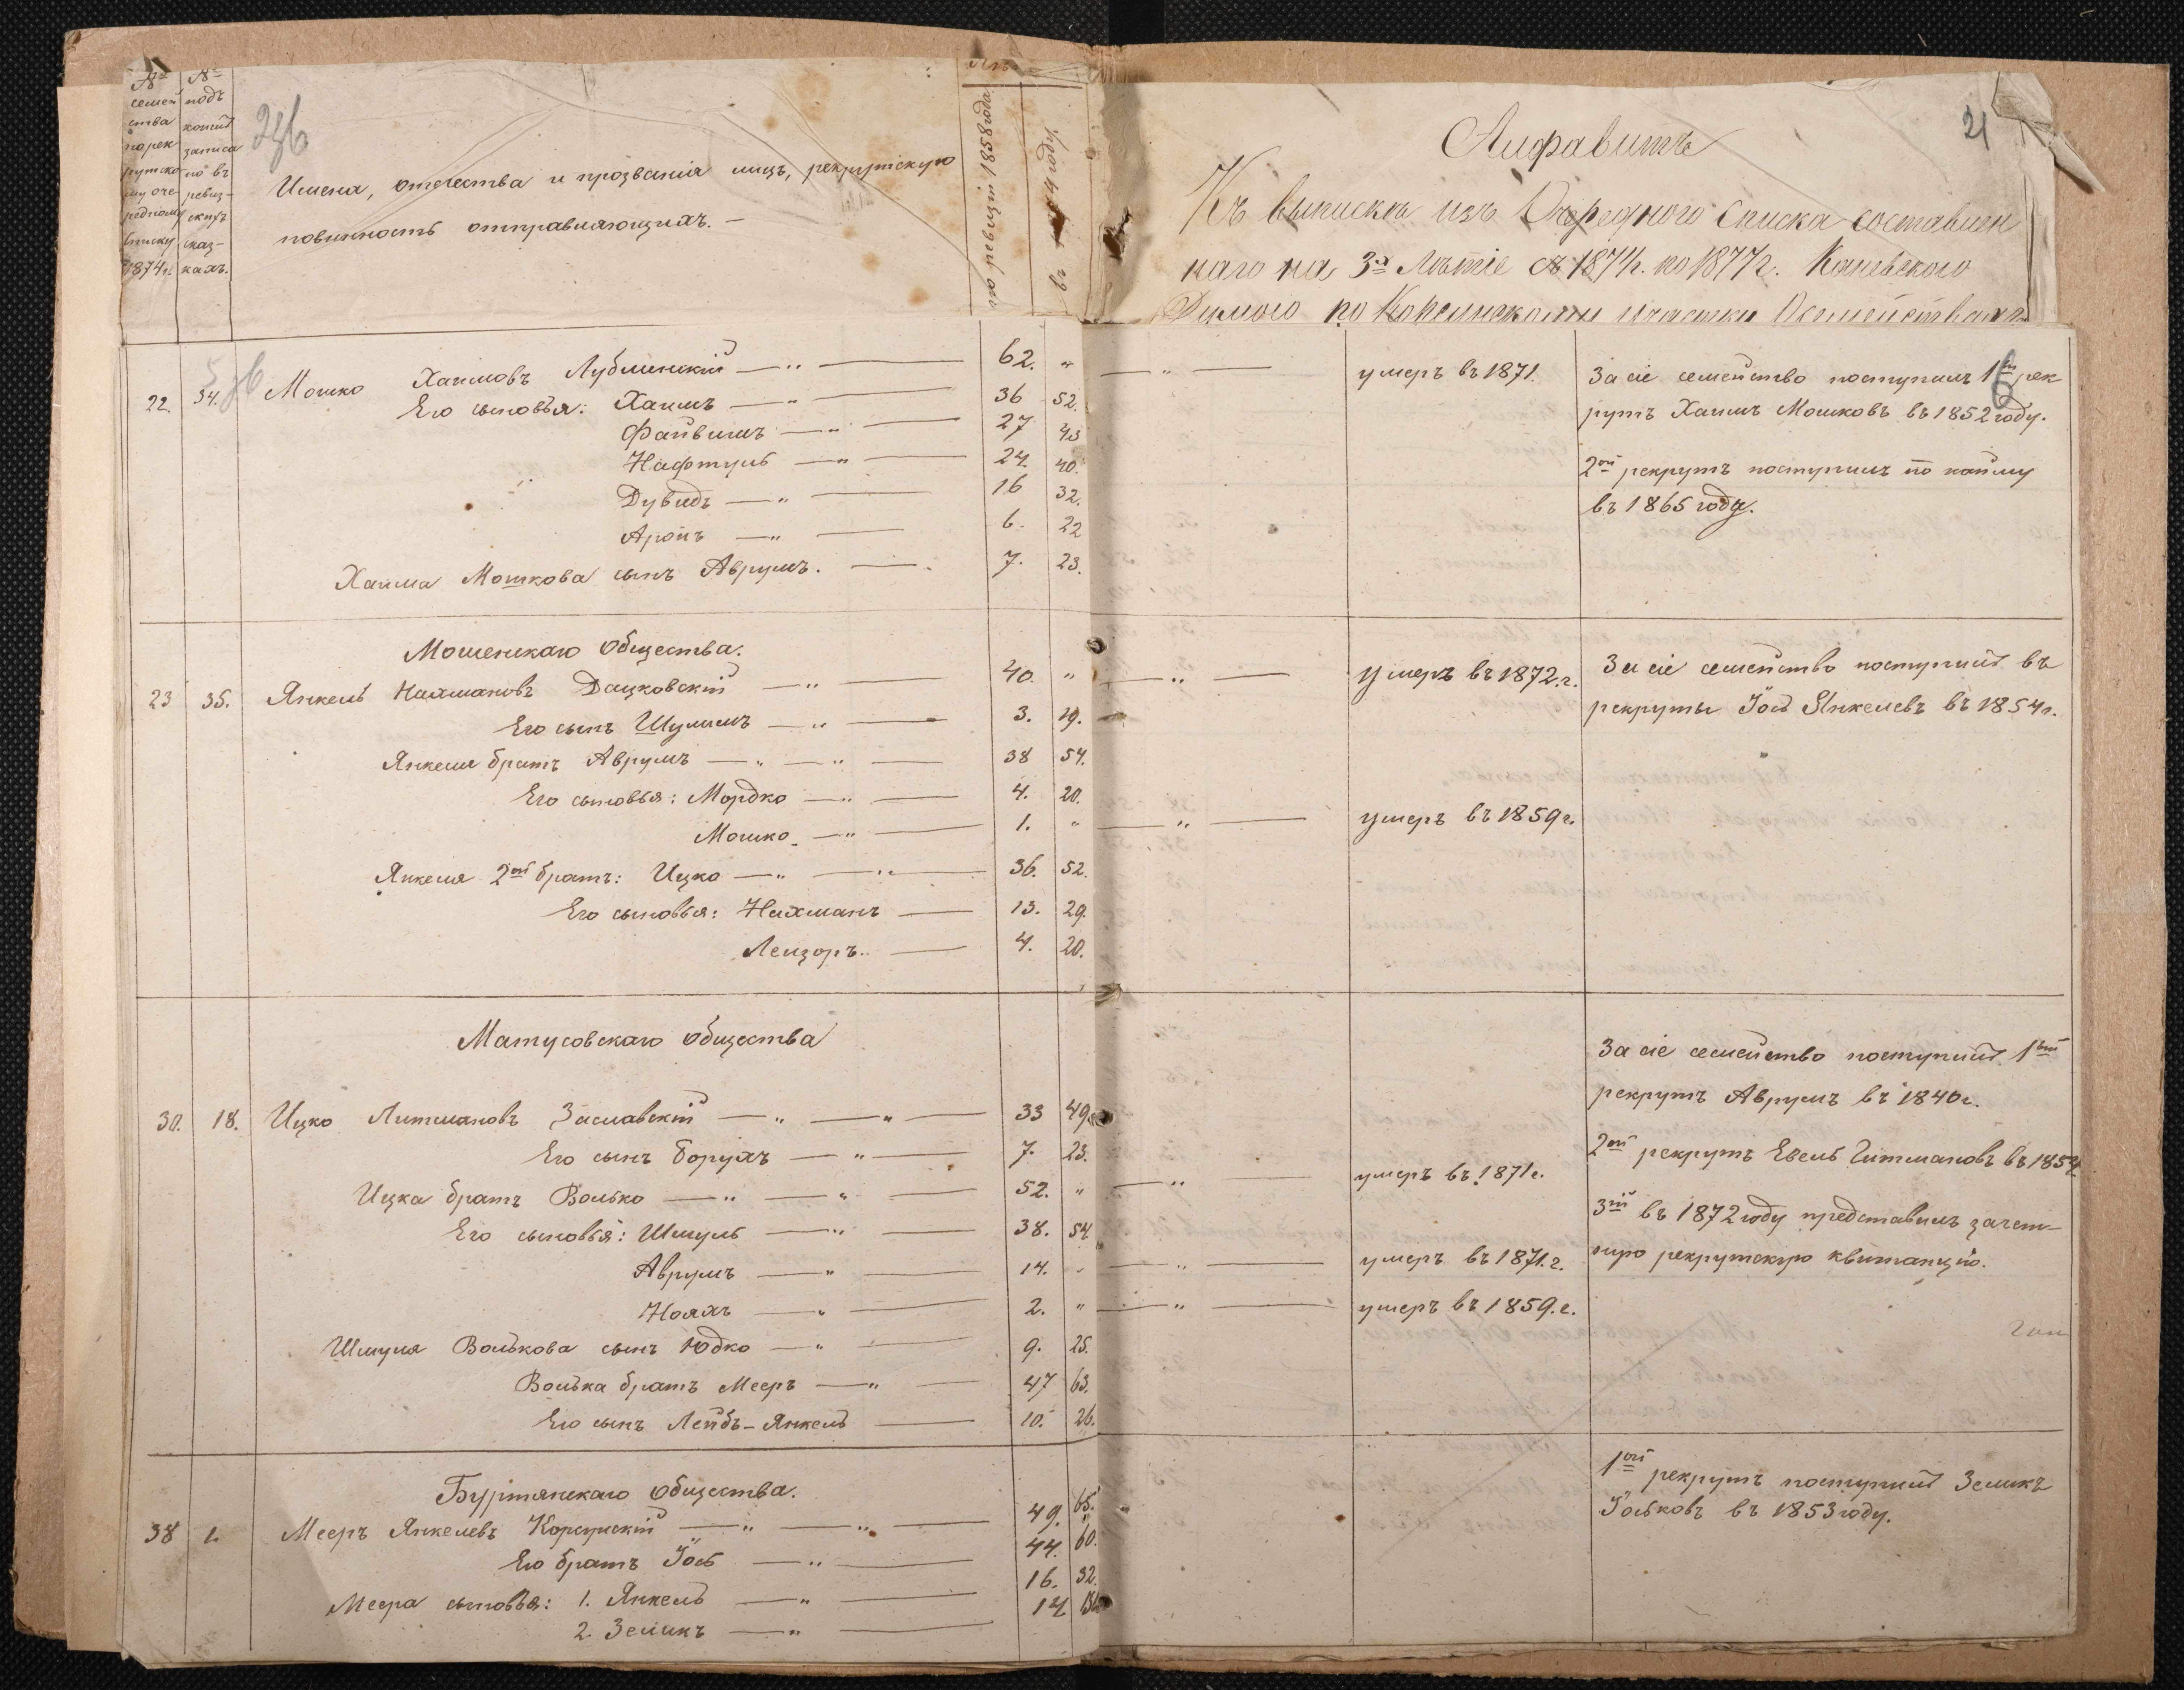 №
семей
ства
по рек
рутско
му оче
редному
списку
1874 г.
№
подъ
коимъ
записа
но въ
ревиз-
скихъ
сказ-
кахъ.
Имена, отечества и прозванія лицъ, рекрутскую
повинность отправляющихъ. —
по ревизіи 1858 года
въ 1874 году
21
Алфавитъ
Къ выпискѣ изъ Очереднаго списка составлен
наго на 3х лѣтіе съ 1874 г. по 1877 г. Каневскаго
22. 34. Мошко Хаимовъ Лублинскій — „ — 62. „ — „ — умеръ въ 1871.
Его сыновья: Хаимъ — „ — 36 52.
Файвишъ — „ — 27 43
Нафтуль — „ — 24. 40.
Дувидъ — „ — 16 32.
Аронъ — „ — 6. 22
Хаима Мошкова сынъ Аврумъ. — . 7. 23.
За сіе семейство поступилъ 1й рек-
рутъ Хаимъ Мошковъ въ 1852 году.
2ой рекрутъ поступилъ по найму
въ 1865 году.
Мошенскаго Общества.
23 35. Янкель Нахмановъ Дацковскій — „ — 40. „ — „ — умеръ въ 1872. г.
Его сынъ Шулимъ — „ — 3. 19.
Янкеля братъ Аврумъ — „ — „ — 38 54.
Его сыновья: Мордко — „ — 4. 20.
Мошко — „ — 1. „ — „ — умеръ въ 1859 г.
Янкеля 2ой братъ: Ицко — „ — „ — 36. 52.
Его сыновья: Нахманъ — 13. 29.
Лейзоръ. — 4. 20.
За сіе семейство поступилъ въ
рекруты Іось Янкелевъ въ 1854 г.
Матусовскаго Общества
30. 18. Ицко Литмановъ Заславскій — „ — „ — 33 49.
Его сынъ Борухъ — „ — 7. 23.
Ицка братъ Волько — „ — „ — 52. „ — „ — умеръ въ 1871 г.
Его сыновья: Шмуль — „ — 38. 54
Аврумъ — „ — 14. „ — „ — умеръ въ 1871. г.
Ноахъ — „ — 2. „ — „ — умеръ въ 1859. г.
Шмуля Волькова сынъ Юдко — „ — 9. 25.
Волька братъ Мееръ — „ — 47 63.
Его сынъ Лейбъ-Янкель — 10. 26.
За сіе семейство поступилъ 1вый
рекрутъ Аврумъ въ 1840 г.
2ой рекрутъ Евель Литмановъ въ 1854
3ій въ 1872 году представилъ зачет-
ную рекрутскую квитанцію.
Буртянскаго Общества.
38 1. Мееръ Янкелевъ Корсунскій — „ — „ — 49. 65.
Его братъ Іось — „ — 44. 60.
Меера сыновья: 1. Янкель — „ — 16. 32.
2. Зеликъ — „ —
1ой рекрутъ поступилъ Зеликъ
Іоськовъ въ 1853 году.